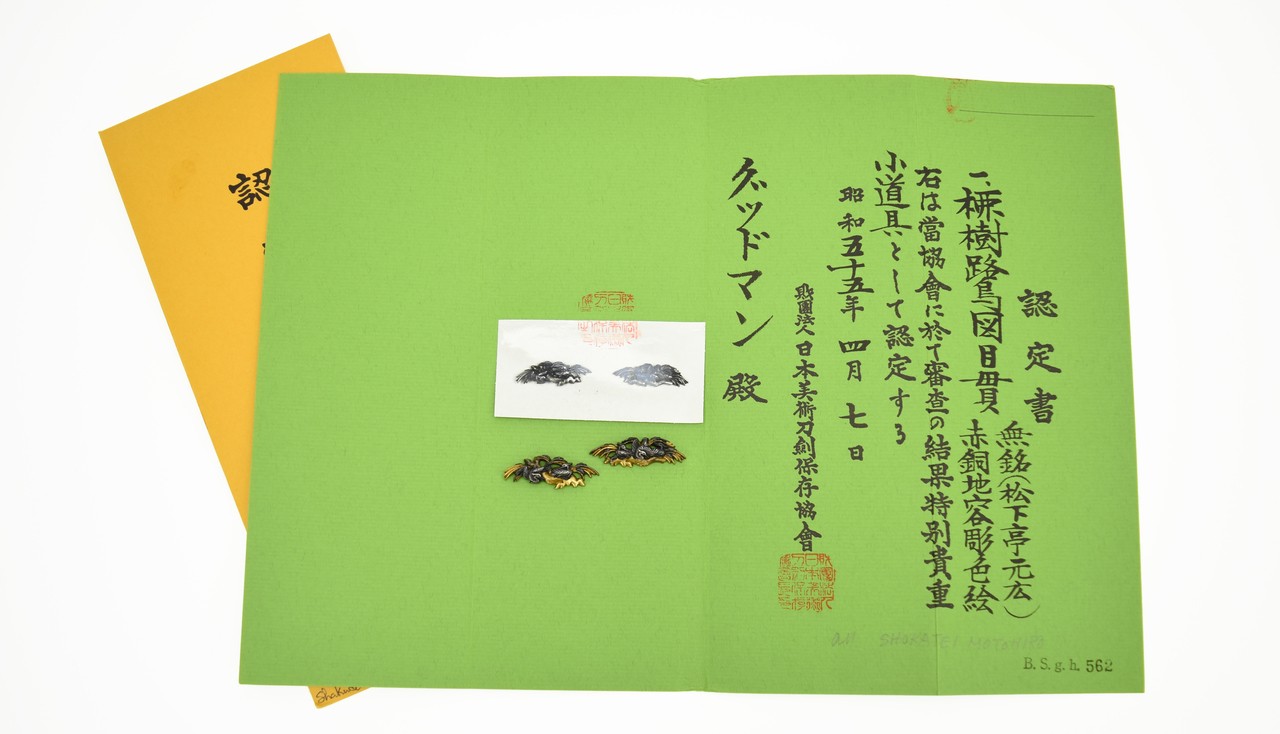 認定書
一、樹鷺図目貫
無銘(松下亭元広)
赤銅地容彫色絵
右は當協會に於て審査の結果特別貴重
小道具として認定する
昭和五十五年四月七日
財團法人日本美術刀劍保存協會
グッドマン殿
SHOKATEI MOTOHIRO
B. S. g. h. 562
認